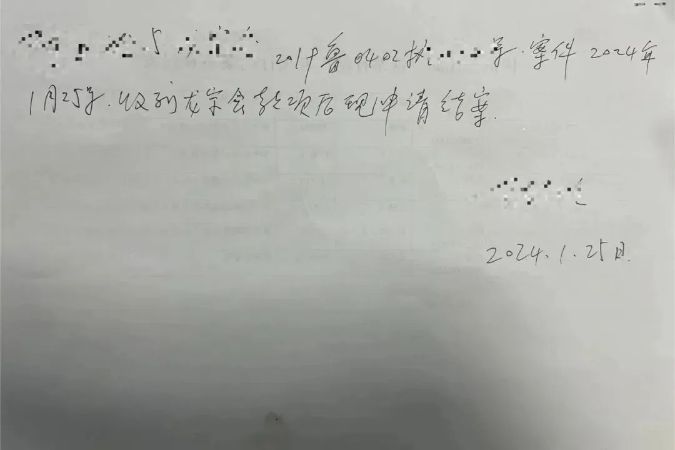 与 2019鲁0402执 号.案件 2024年
1月25号.收到龙宗会款项后现申请结案.
2024.1.25日.